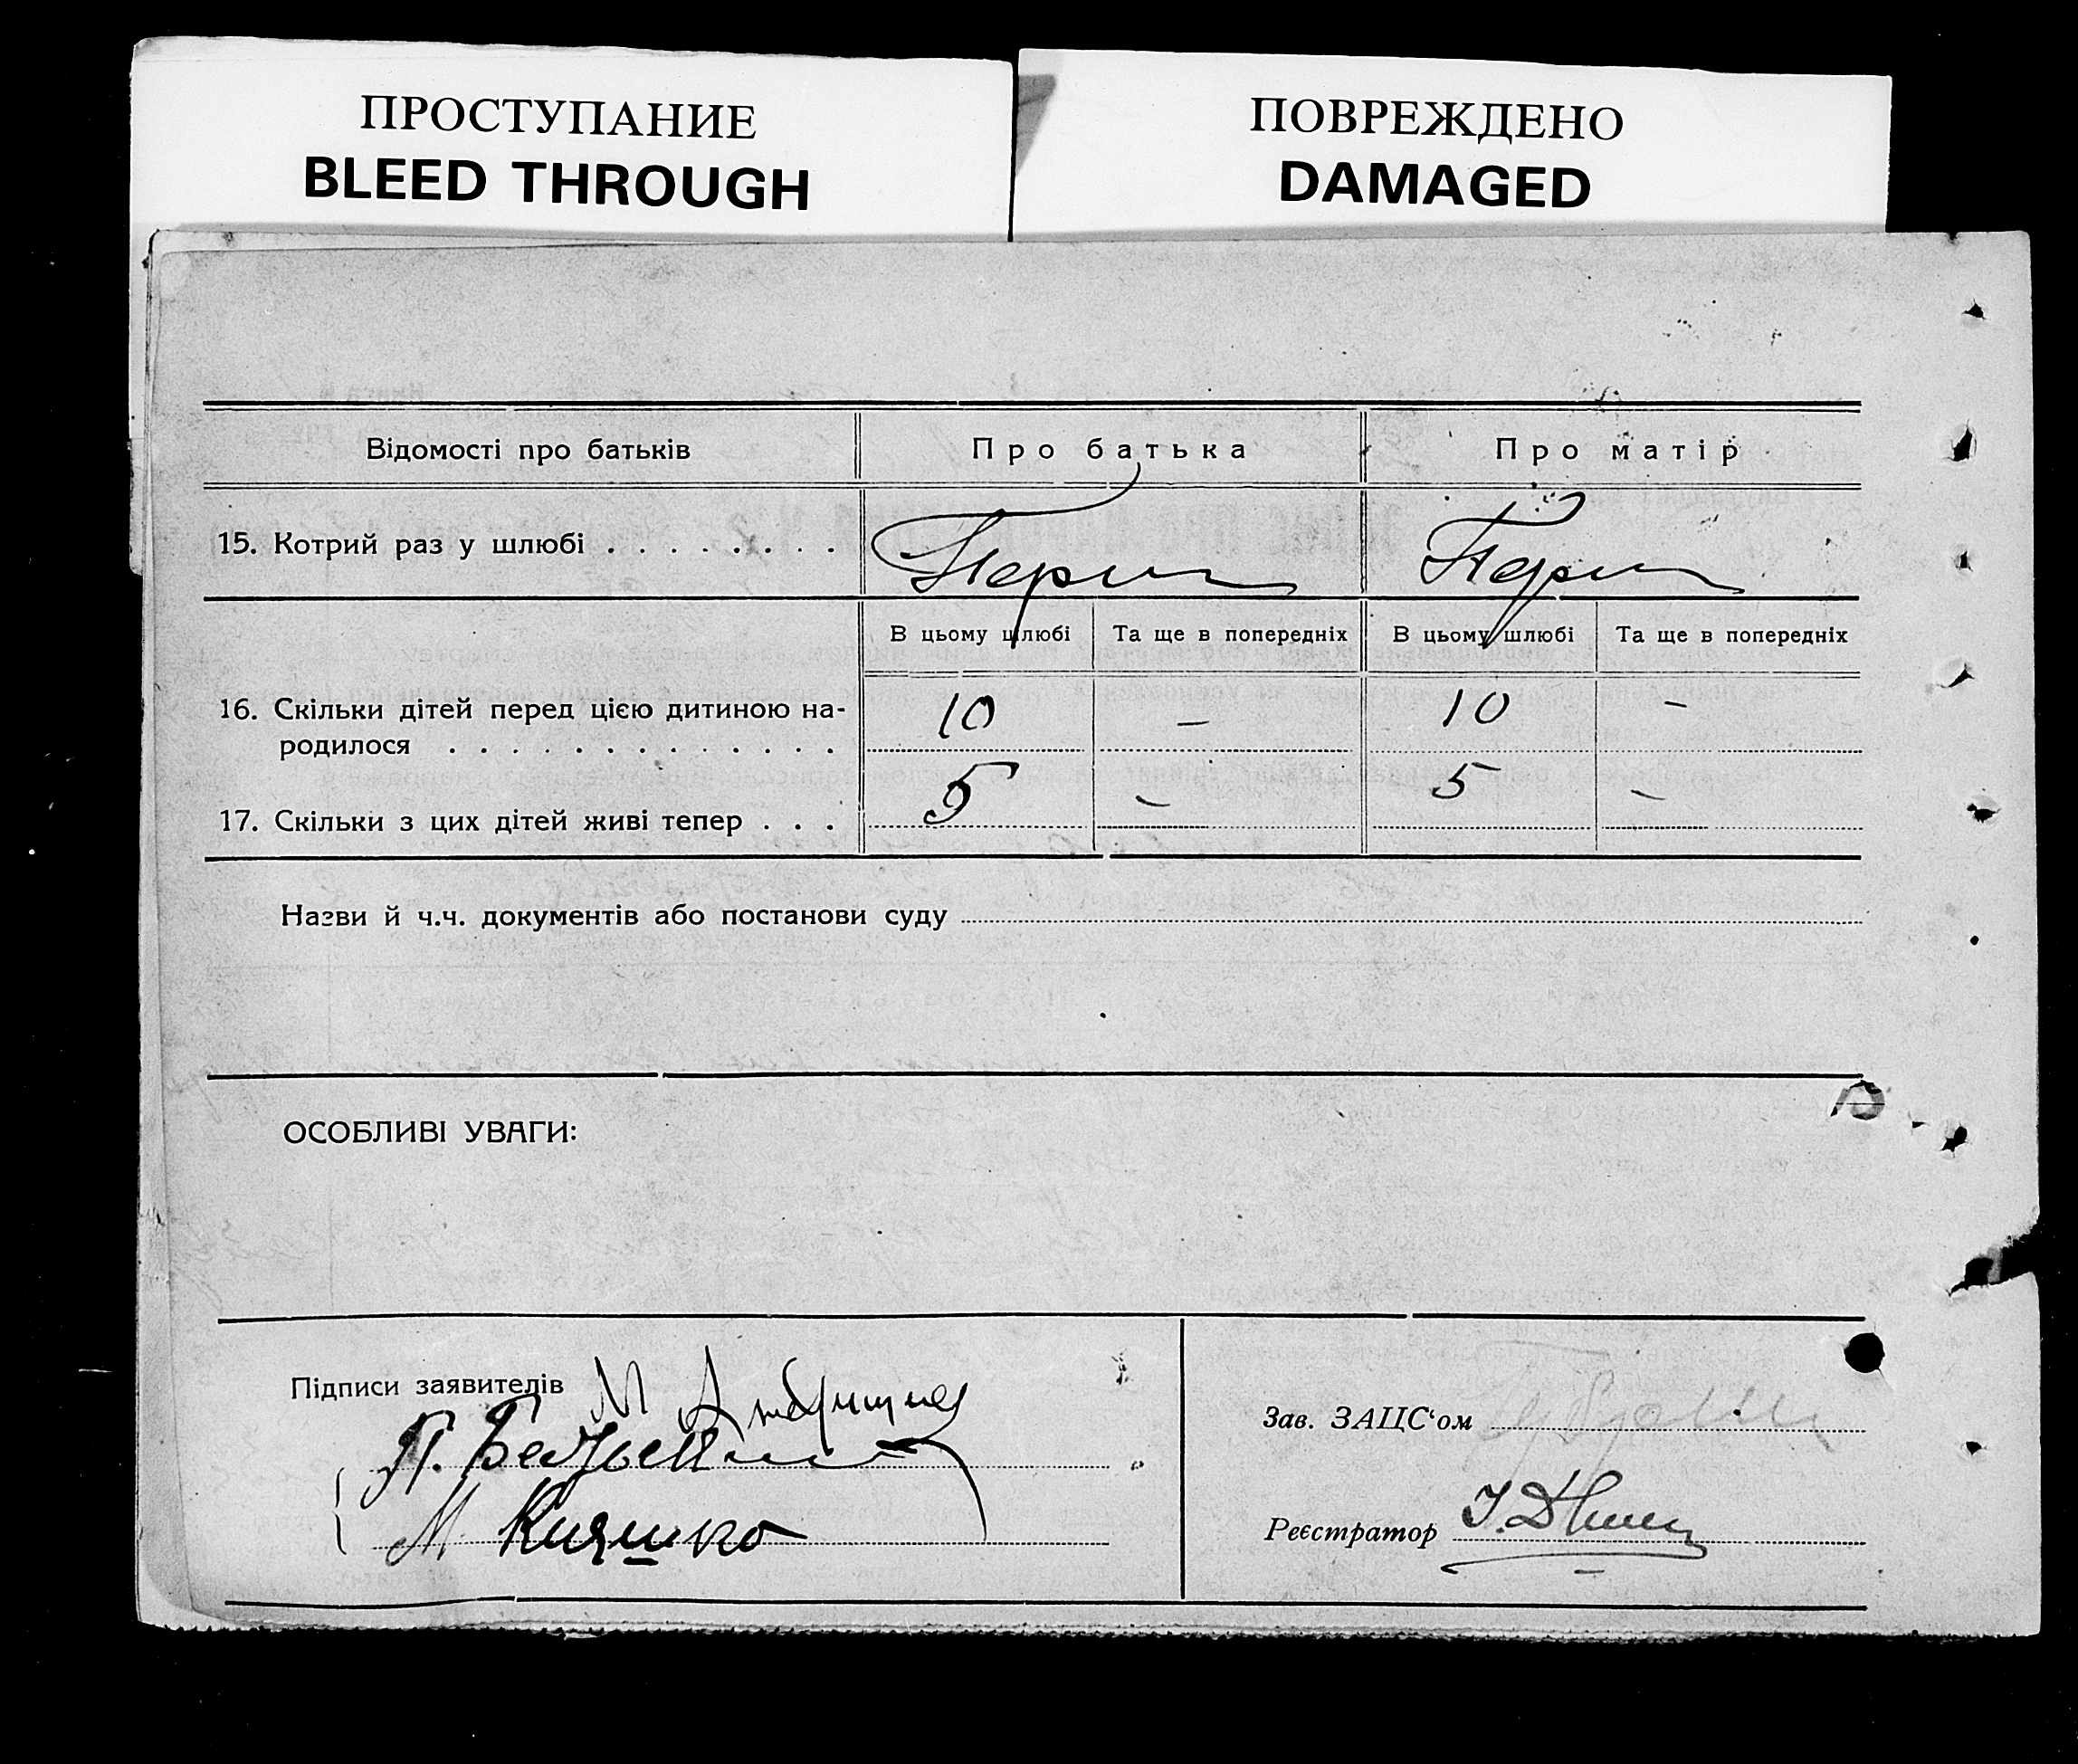 ПРОСТУПАНИЕ
BLEED THROUGH
ПОВРЕЖДЕНО
DAMAGED
Відомості про батьків
Про батька
Про матір
15. Котрий раз у шлюбі . . . . . . . .
Перш
Перш
В цьому шлюбі
Та ще в попередніх
В цьому шлюбі
Та ще в попередніх
16. Скільки дітей перед цією дитиною на-
родилося . . . . . . . . . . . . .
10
–
10
–
17. Скільки з цих дітей живі тепер . . .
5
–
5
–
Назви й ч.ч. документів або постанови суду
ОСОБЛИВІ УВАГИ:
Підписи заявителів М
П.
М. Кияшко
Зав. ЗАЦС‘ом
Реєстратор